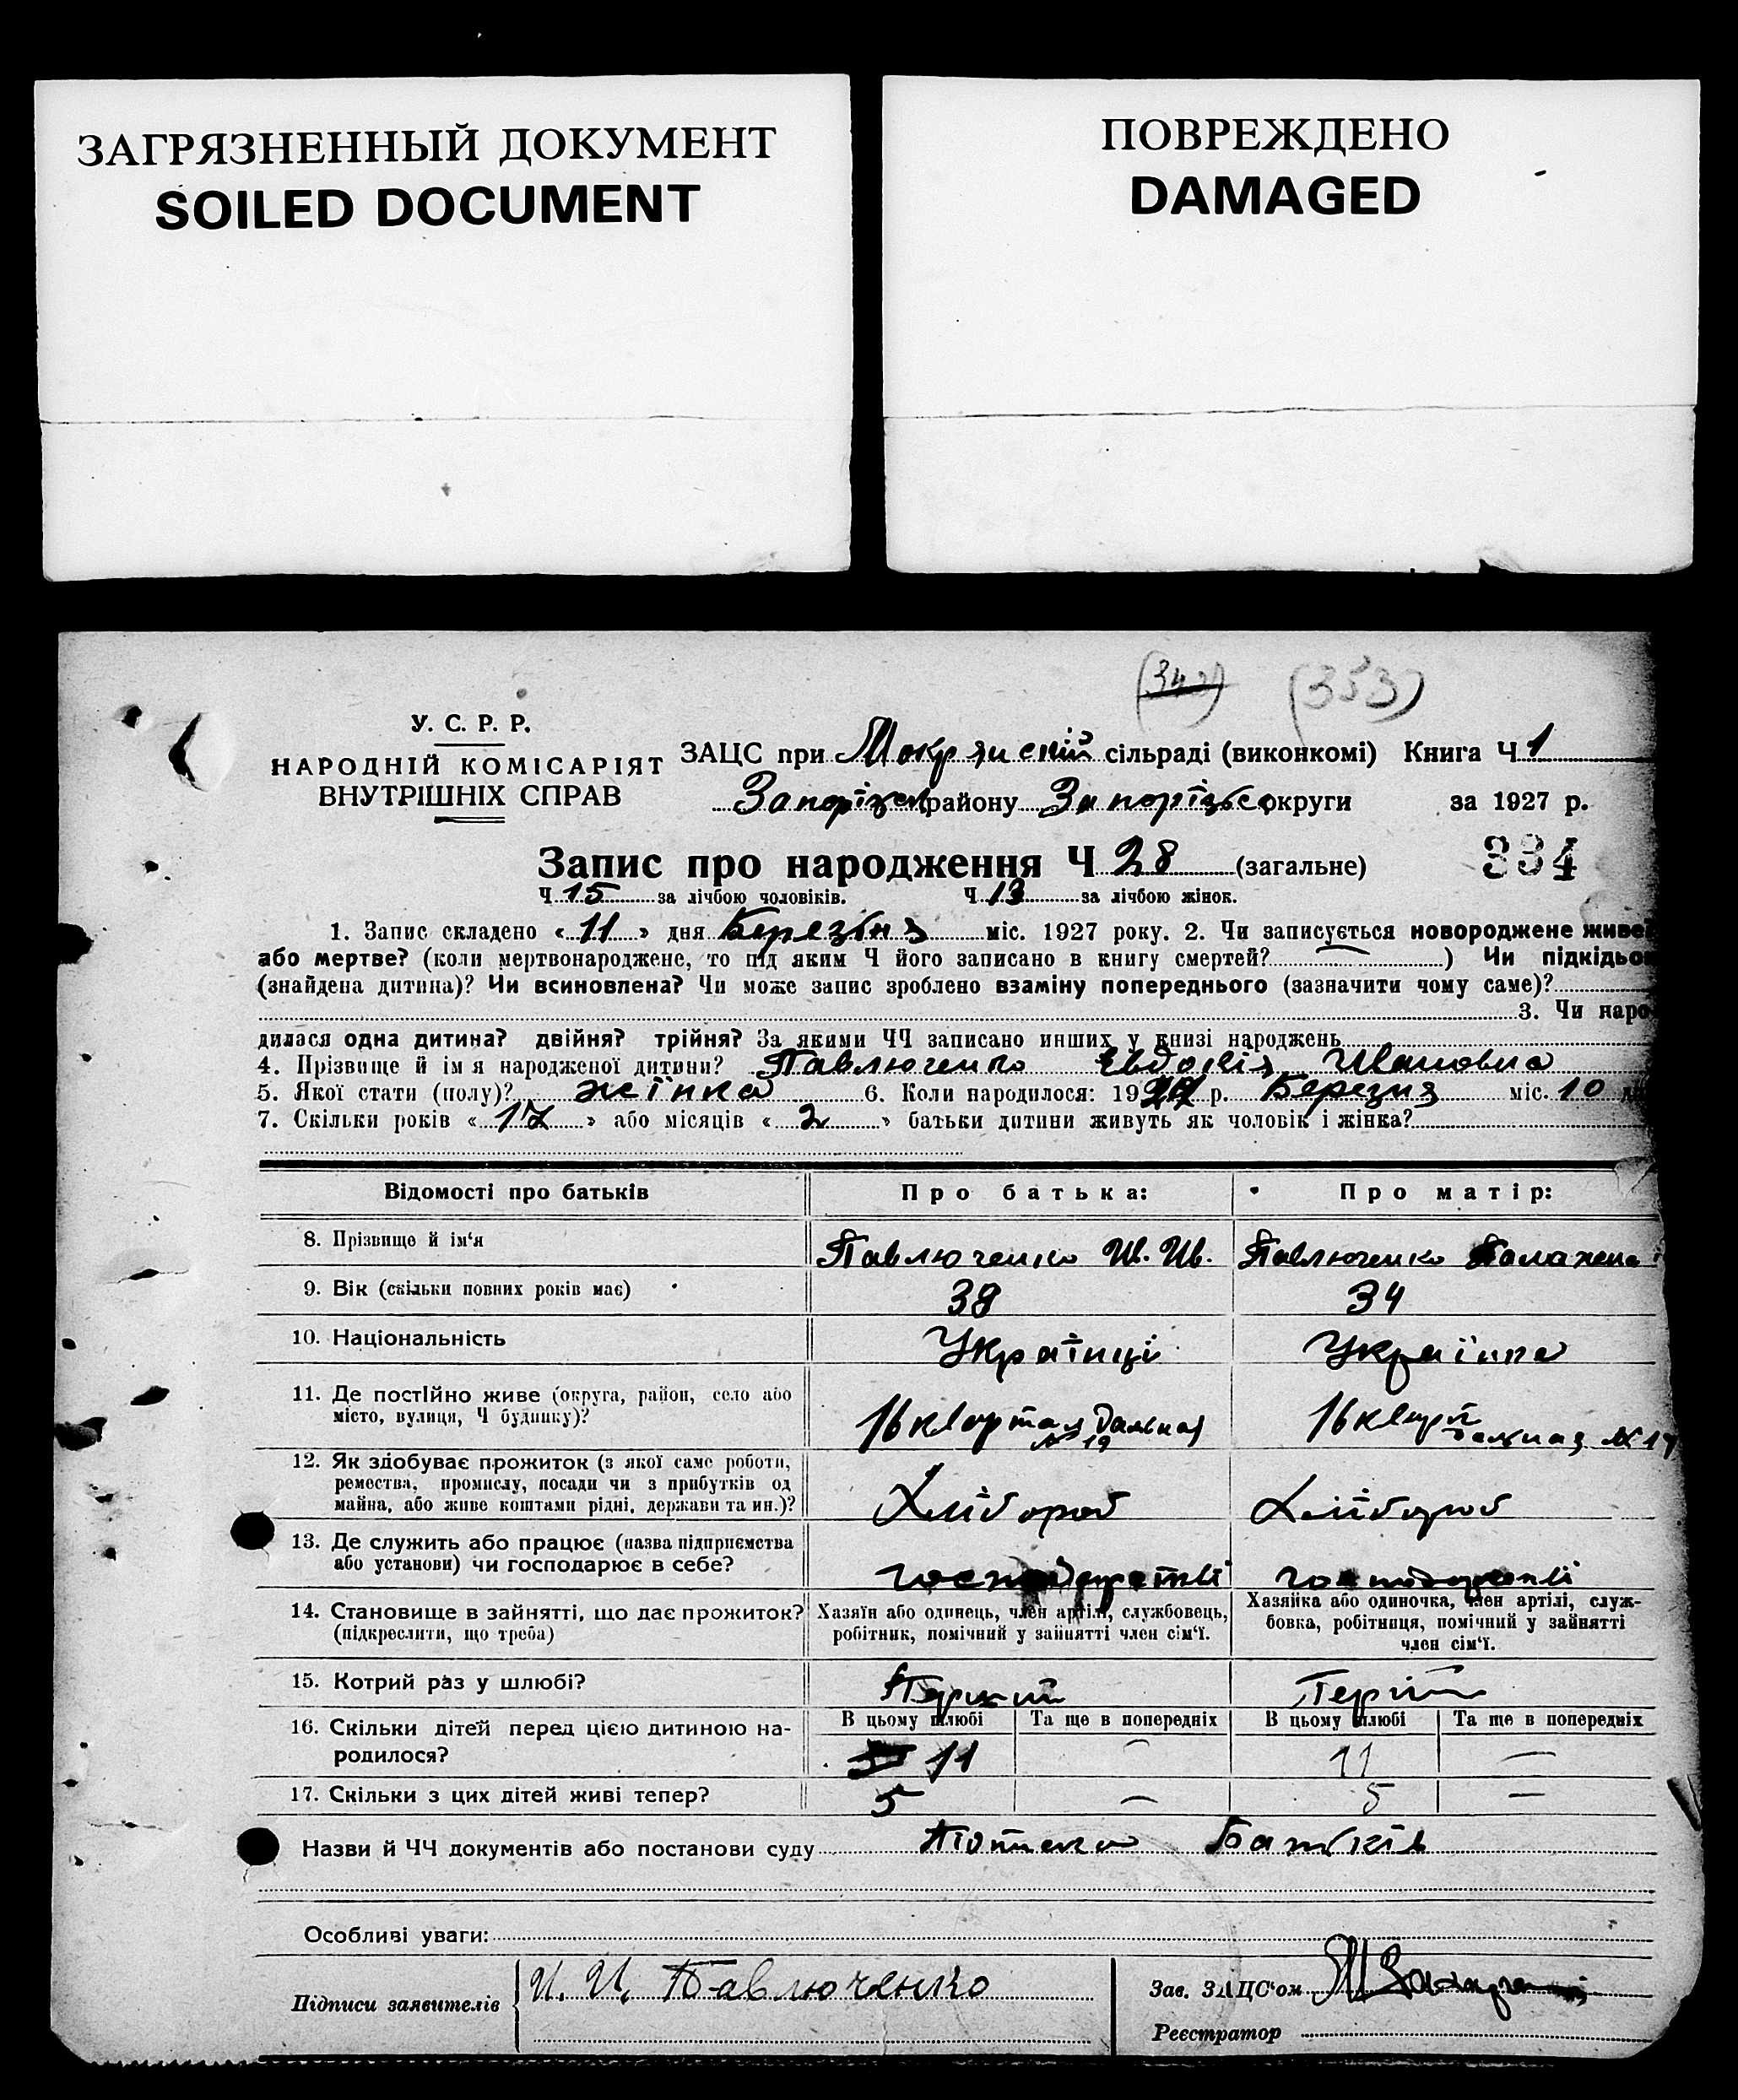 ЗАГРЯЗНЕННЫЙ ДОКУМЕНТ
SOILED DOCUMENT
ПОВРЕЖДЕНО
DAMAGED
(353)
У. С. Р. Р.
НАРОДНІЙ КОМІСАРІЯТ
ВНУТРІШНІХ СПРАВ
ЗАЦС при Мокрянскій сільраді (виконкомі) Книга Ч 1
району округи за 1927 р.
Запис про народження Ч 28 (загальне) 334
Ч 15 за лічбою чоловіків. Ч 13 за лічбою жінок.
1. Запис складено « 11 » дня Березня міс. 1927 року. 2. Чи записується новороджене живе
або мертве? (коли мертвонароджене, то під яким Ч його записано в книгу смертей? — ) Чи підкідьок
(знайдена дитина)? Чи всиновлена? Чи може запис зроблено взаміну попереднього (зазначити чому саме)?
3. Чи наро-
дилася одна дитина? двійня? трійня? За якими ЧЧ записано инших у книзі народжень
4. Прізвище й ім я народженої дитини? Павлюченко Евдокія Ивановна
5. Якої стати (полу)? жінка 6. Коли народилося: 1927 р. Березня міс. 10
7. Скільки років « 17 » або місяців « 2 » батьки дитини живуть як чоловік і жінка?
Відомості про батьків Про батька: Про матір:
8. Прізвище й ім‘я Павлюченко Ив. Ив. Павлюченко
9. Вік (скільки повних років має) 38 34
10. Національність Українці Українка
11. Де постІйно живе (округа, район, село або
місто, вулиця, Ч будинку)? 16 квартал Дальная № 19 16 кварт Дальная № 19
12. Як здобуває прожиток (з якої саме роботи,
ремества, промислу, посади чи з прибутків од
майна, або живе коштами рідні, держави та ин.)? Хлібороб Хлібороб
13. Де служить або працює (назва підприємства
або установи) чи господарює в себе?
14. Становище в зайнятті, що дає прожиток? Хазяїн або одинець, член артілі, службовець, Хазяйка або одиночка, член артілі, служ-
(підкреслити, що треба) робітник, помічний у зайнятті член сім‘ї. бовка, робітниця, помічний у зайнятті
член сім‘ї.
15. Котрий раз у шлюбі?
16. Скільки дітей перед цією дитиною на- В цьому шлюбі Та ще в попередніх В цьому шлюбі Та ще в попередніх
родилося? 11 — 11 —
17. Скільки з цих дітей живі тепер? 5 — 5 —
Назви й ЧЧ документів або постанови суду Батьків
Особливі уваги:
Підписи заявителів И. И. Павлюченко Зав. ЗАЦС‘ом
Реєстратор